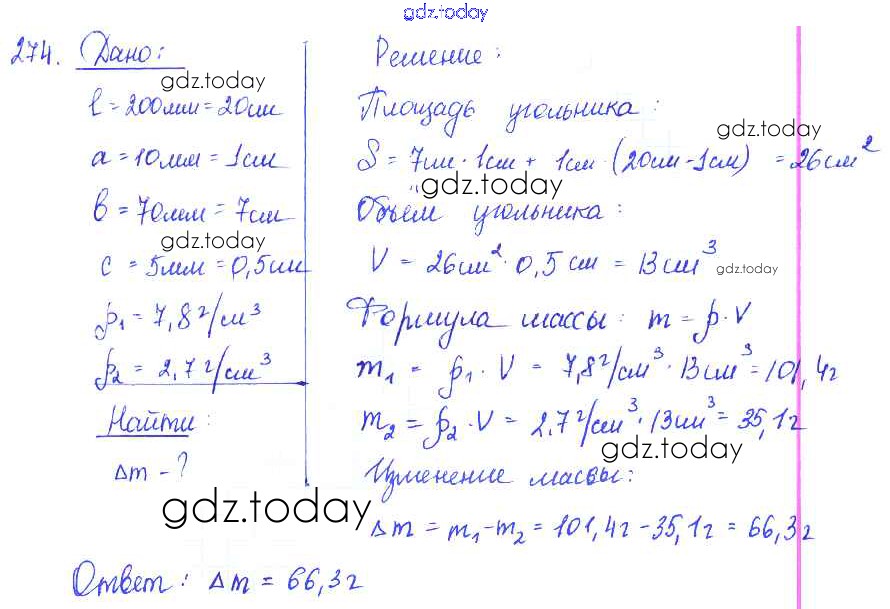 gdz.today
274. Дано:
gdz.today
l = 200мм = 20см
a = 10мм = 1см
b = 70мм = 7см
gdz.today
c = 5мм = 0,5см
ρ₁ = 7,8 г/см³
ρ₂ = 2,7 г/см³
Найти:
Δm - ?
gdz.today
Решение:
Площадь угольника:
gdz.today
S = 7см · 1см + 1см · (20см - 1см) = 26см²
gdz.today
Объём угольника:
V = 26см² · 0,5 см = 13см³
gdz.today
Формула массы: m = ρ · V
m₁ = ρ₁ · V = 7,8 г/см³ · 13см³ = 101,4г
m₂ = ρ₂ · V = 2,7 г/см³ · 13см³ = 35,1г
gdz.today
Изменение массы:
Δm = m₁ - m₂ = 101,4г - 35,1г = 66,3г
Ответ: Δm = 66,3г